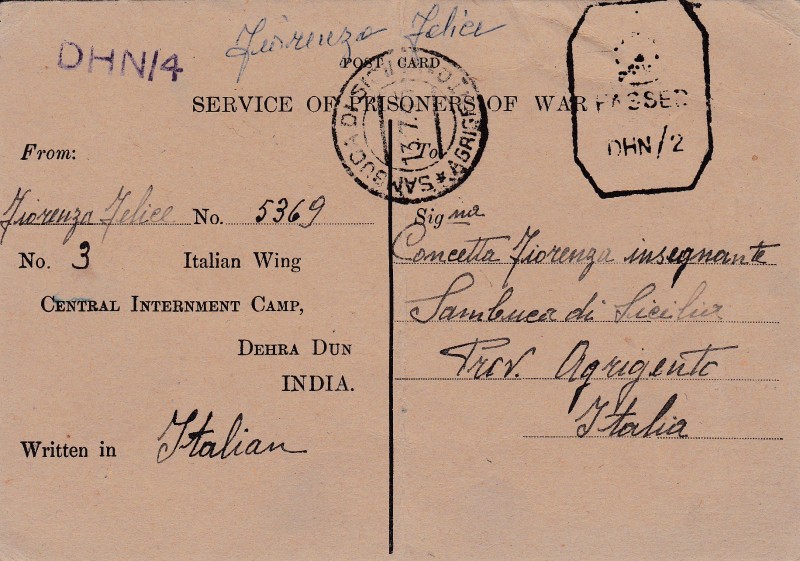 Fiorenza Felice
DHN/4
POST CARD
SERVICE OF PRISONERS OF WAR
PASSED
DHN/2
SAMBUCA DI SICILIA
AGRIGENTO
13.7.
From:
Fiorenza Felice No. 5369
No. 3 Italian Wing
CENTRAL INTERNMENT CAMP,
DEHRA DUN
INDIA.
Written in Italian
To
Sig na
Concetta Fiorenza insegnante
Sambuca di Sicilia
Prov. Agrigento
Italia